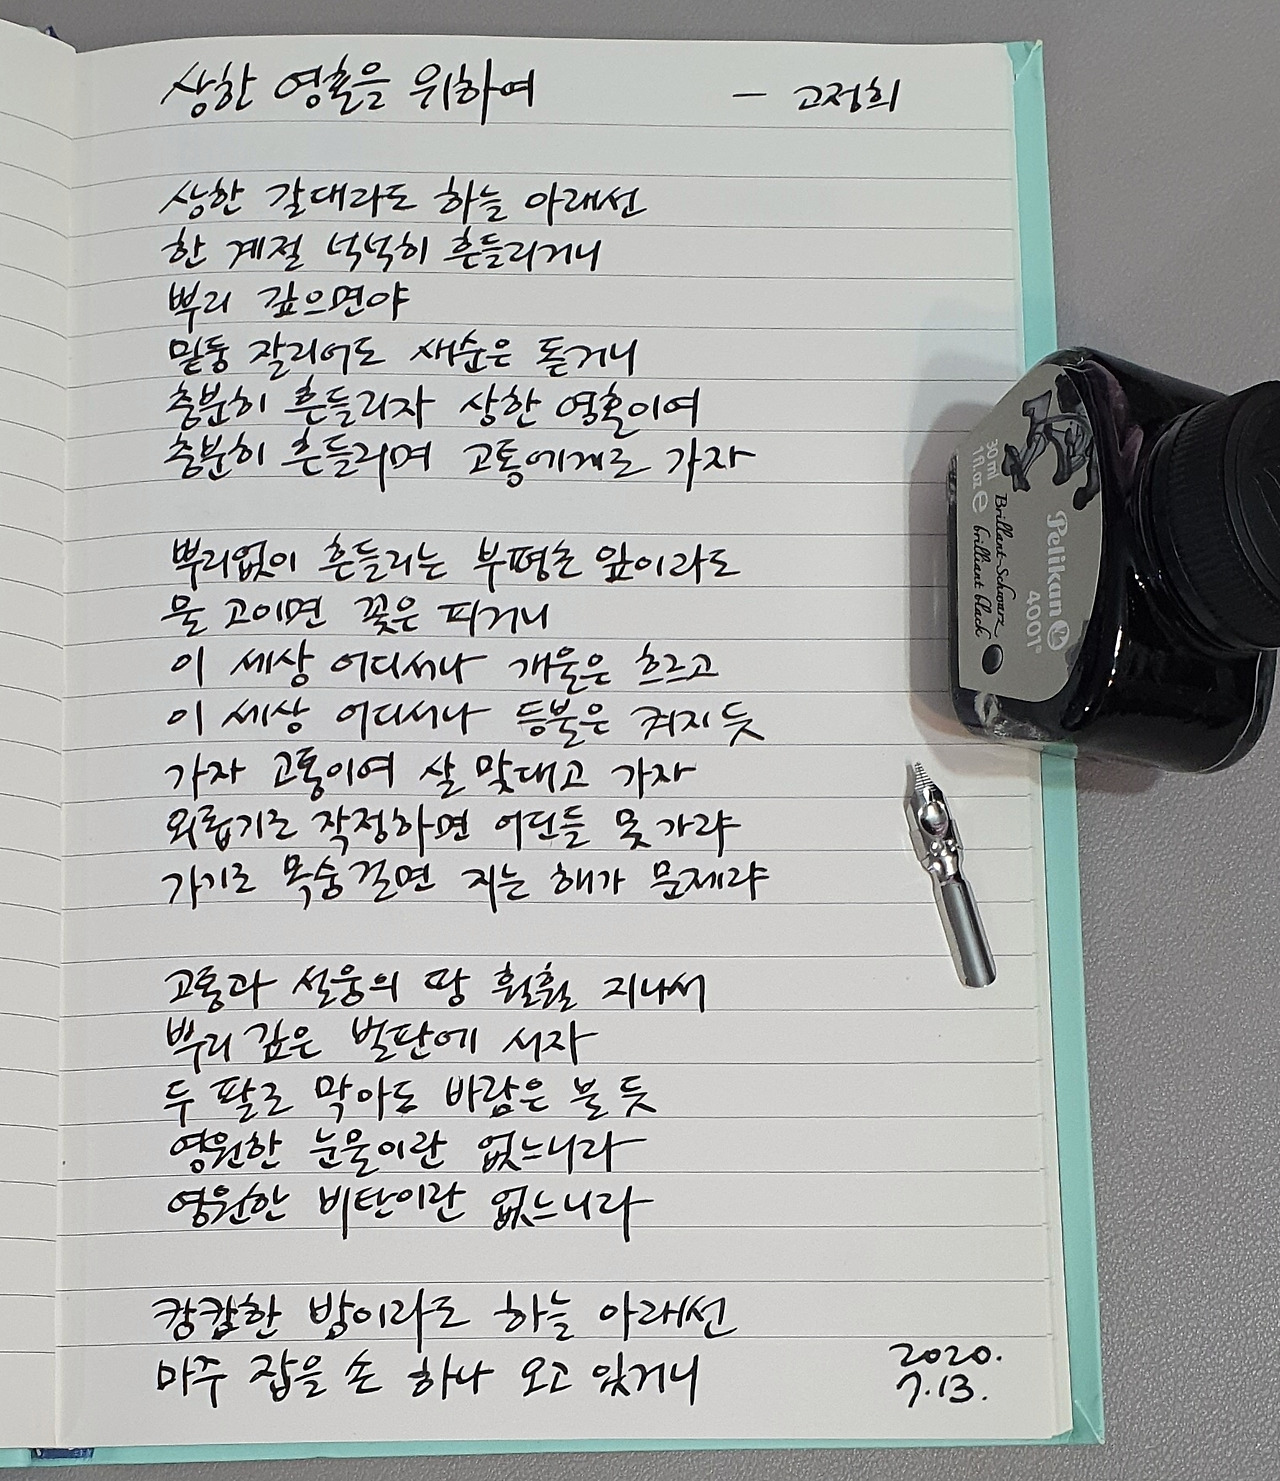 상한 영혼을 위하여 - 고정희
상한 갈대라도 하늘 아래선
한 계절 넉넉히 흔들리거니
뿌리 깊으면야
밑둥 잘리어도 새순은 돋거니
충분히 흔들리자 상한 영혼이여
충분히 흔들리며 고통에게로 가자
뿌리없이 흔들리는 부평초 잎이라도
물 고이면 꽃은 피거니
이 세상 어디서나 개울은 흐르고
이 세상 어디서나 등불은 켜지듯
가자 고통이여 살 맞대고 가자
외롭기로 작정하면 어딘들 못 가랴
가기로 목숨걸면 지는 해가 문제랴
고통과 설움의 땅 훨훨 지나서
뿌리 깊은 벌판에 서자
두 팔로 막아도 바람은 불 듯
영원한 눈물이란 없느니라
영원한 비탄이란 없느니라
캄캄한 밤이라도 하늘 아래선
마주 잡을 손 하나 오고 있거니
2020.
7.13.
Pelikan
4001®
Brillant-Schwarz
brilliant black
30 ml
1 fl.oz e